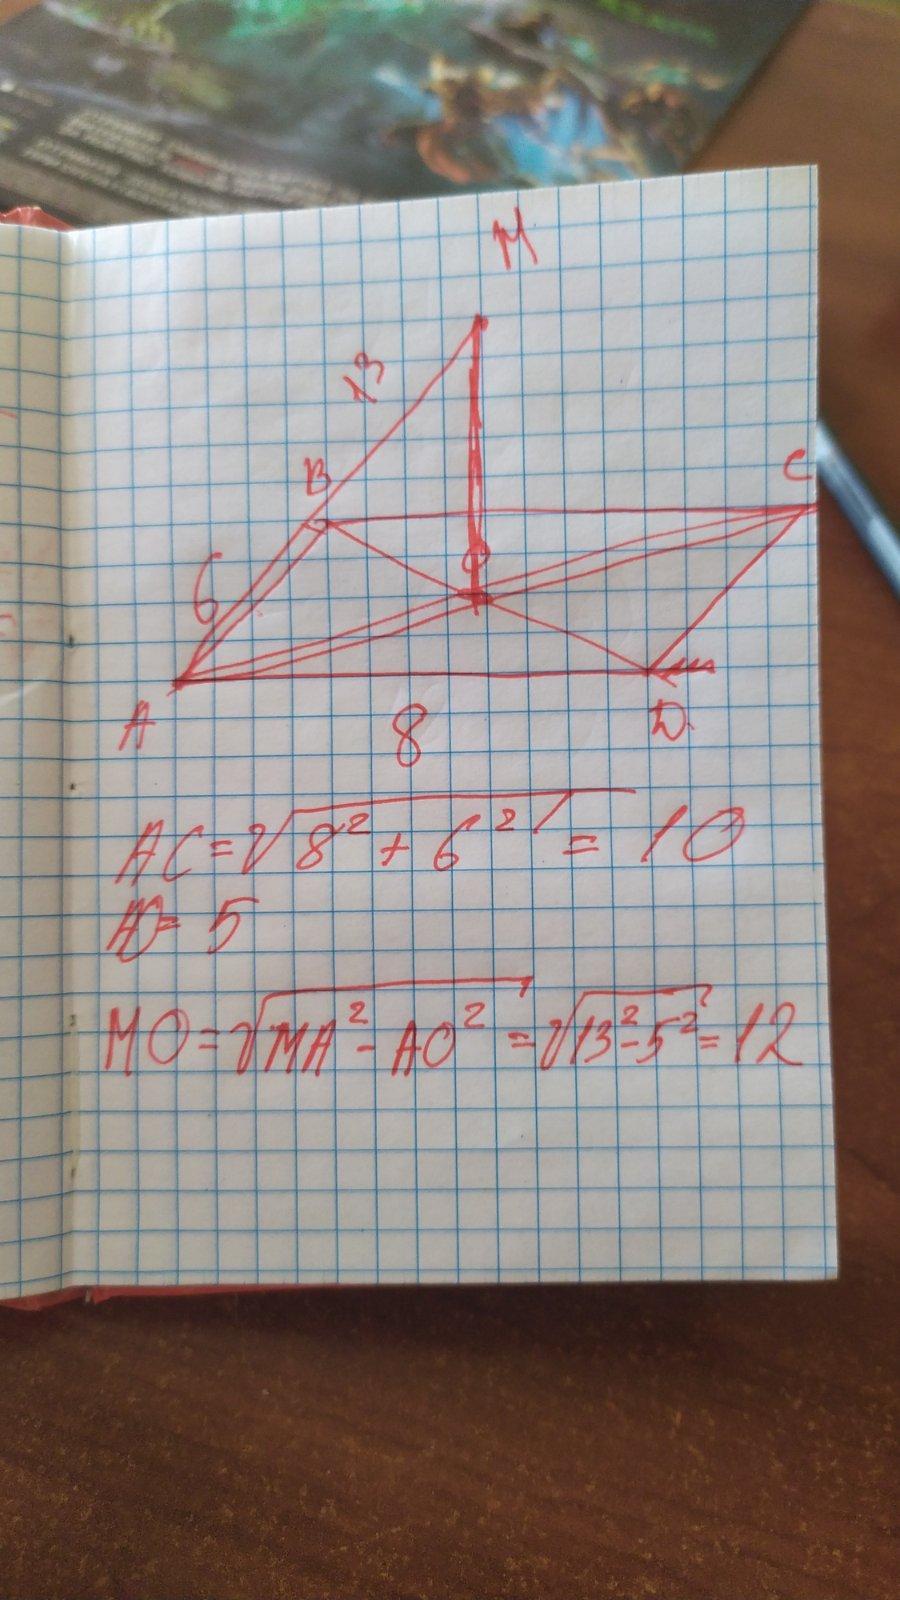 M
13
B
C
6
O
A
D
8
AC = √8² + 6² = 10
AO = 5
MO = √MA² - AO² = √13² - 5² = 12